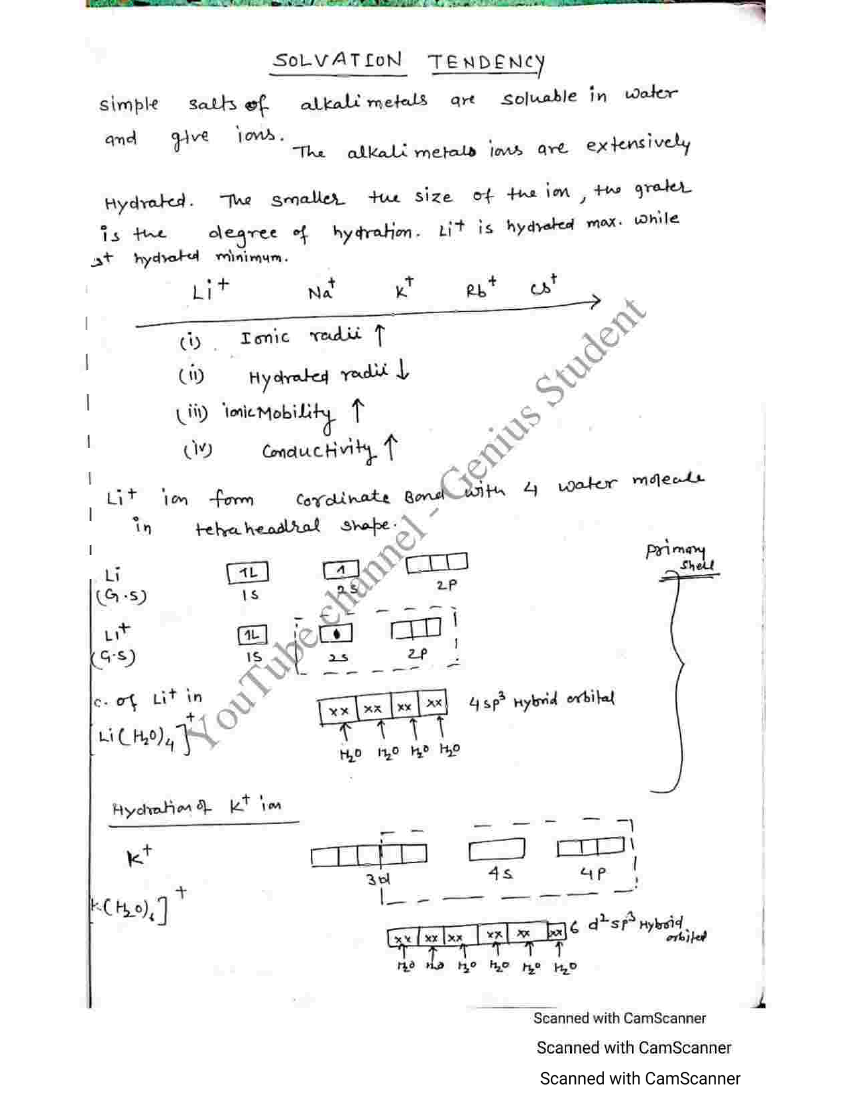 SOLVATION TENDENCY
simple salts of alkali metals are soluable in water
and give ions.
The alkali metals ions are extensively
Hydrated. The smaller the size of the ion, the grater
is the degree of hydration. Li+ is hydrated max. while
st hydrated minimum.
Li+ Na+ K+ Rb+ Cs+
(i) Ionic radii ↑
(ii) Hydrated radii ↓
(iii) ionic Mobility ↑
(iv) Conductivity ↑
Li+ ion form Cordinate Bond with 4 water molecule
in tetraheadral shape.
Primary
Shell
Li
(G.S)
1L 1
1S 2S 2P
Li+
(G.S)
1L
1S 2S 2P
c. of Li+ in
Li(H2O)4]+
xx xx xx xx 4 sp3 Hybrid orbital
H2O H2O H2O H2O
Hydration of K+ ion
K+
3d 4s 4P
K(H2O)6]+
xx xx xx xx xx xx 6 d2sp3 Hybrid
orbital
H2O H2O H2O H2O H2O H2O
YouTube channel - Genius Student
Scanned with CamScanner
Scanned with CamScanner
Scanned with CamScanner